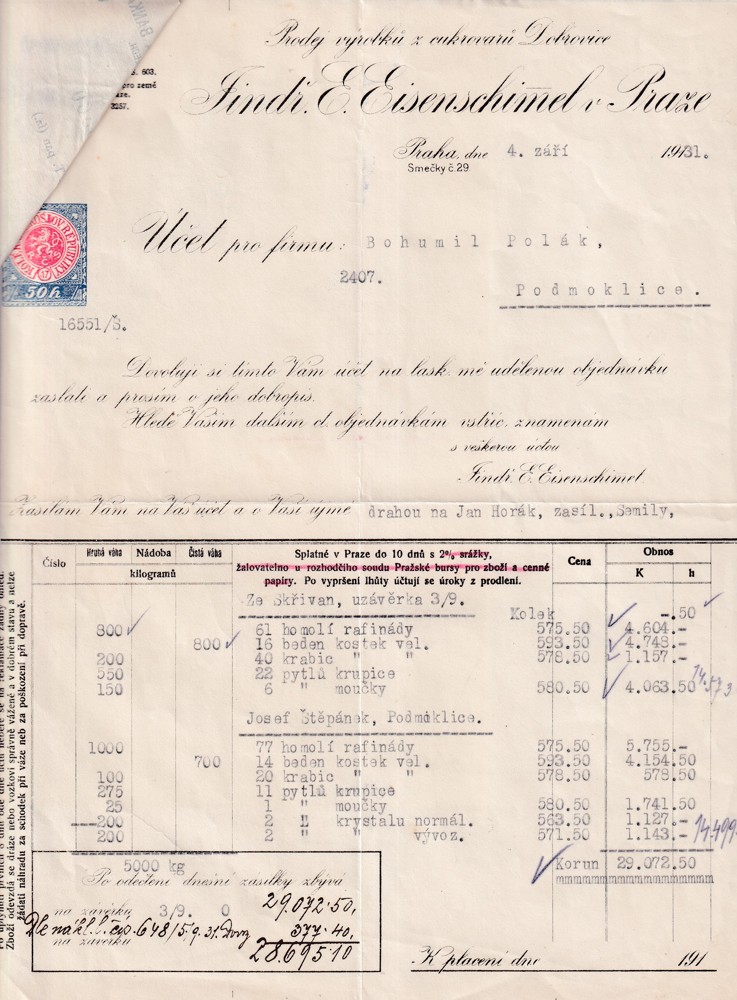 Prodej výrobků z cukrovarů Dobrovice
Jindř. E. Eisenschimmel v Praze
603.
pro země
3257.
Praha, dne 4. září 1931.
Smečky č. 29.
50 h.
Účet pro firmu: Bohumil Polák,
2407.
Podmoklice.
16551/Š.
Dovoluji si tímto Vám účet na lask. mě udělenou objednávku
zaslati a prosím o jeho dobropis.
Hledě Vašim dalším ct. objednávkám vstříc, znamenám
s veškerou úctou
Jindř. E. Eisenschimmel.
Zasílám Vám na Váš účet a o Vaší újmě drahou na Jan Horák, zasíl., Semily,
Číslo Hrubá váha Nádoba Čistá váha Splatné v Praze do 10 dnů s 2% srážky, Cena Obnos
kilogramů žalovatelno u rozhodčího soudu Pražské bursy pro zboží a cenné K h
papíry. Po vypršení lhůty účtují se úroky z prodlení.
Ze Skřivan, uzávěrka 3/9.
Kolek -.50
800 61 homolí rafinády 575.50 4.604.-
800 16 beden kostek vel. 593.50 4.748.-
200 40 krabic " " 578.50 1.157.-
550 22 pytlů krupice
150 6 " moučky 580.50 4.063.50 14.573
Josef Štěpánek, Podmoklice.
1000 77 homolí rafinády 575.50 5.755.-
700 14 beden kostek vel. 593.50 4.154.50
100 20 krabic " " 578.50 578.50
275 11 pytlů krupice
25 1 " moučky 580.50 1.741.50
200 2 " krystalu normál. 563.50 1.127.-
200 2 " " vývoz. 571.50 1.143.- 14.499
Korun 29.072.50
5000 kg
Po odečtení dnešní zásilky zbývá
na závěrku 3/9. 0 29.072·50,
Dle nákl. l. čís. 648/5/9. 31. 377·40,
na závěrku 28.695·10
K placení dne 191
Zboží odevzdá se dráze nebo vozkovi správně vážené a v dobrém stavu a nelze
žádati náhradu za schodek při váze neb za poškození při dopravě.